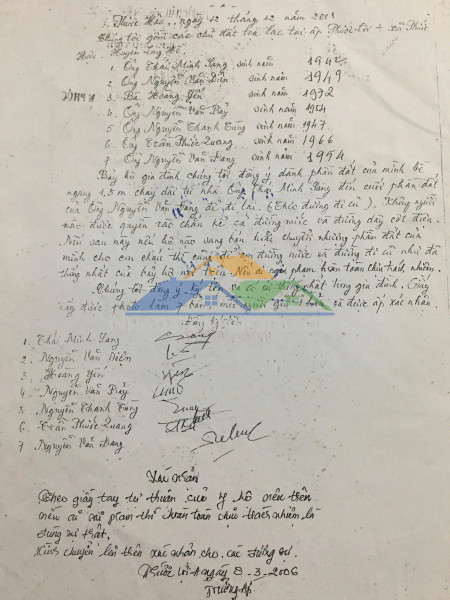 Phước Hậu, ngày 12 tháng 12 năm 2003
Chúng tôi gồm các chủ đất tọa lạc tại ấp Phước Lợi - xã Phước
Hậu, Huyện Long Hồ.
1. Ông Thái Minh Sang sinh năm
2. Ông Nguyễn Văn Diện sinh năm 1949
3. Bà Hoàng Yến sinh năm 1932
4. Ông Nguyễn Văn Bảy sinh năm 1954
5. Ông Nguyễn Thanh Tùng sinh năm 1947
6. Ông Trần Phước Quang sinh năm 1966
7. Ông Nguyễn Văn Đang sinh năm 1954
Bảy hộ gia đình chúng tôi đồng ý dành phần đất của mình bề
ngang 1,5m chạy dài từ nhà Ông Thái Minh Sang đến cuối phần đất
của Ông Nguyễn Văn Đang để đi lại. (Theo đường đi cũ). Không người
nào được quyền rào chắn kể cả đường nước và đường dây cột điện
Nếu sau này nếu hộ nào sang bán hoặc chuyển nhượng phần đất của
mình cho con cháu thì cũng để con đường nước và đường đi cũ như đã
thống nhất của bảy hộ nói trên. Nếu ai vi phạm hoàn toàn chịu trách nhiệm.
Chúng tôi đồng ý ký tên và có sự thống nhất từng gia đình. Giấy
này được photo làm 7 bản mỗi người giữ bản và được ấp xác nhận
Đồng ký tên
1. Thái Minh Sang
2. Nguyễn Văn Diện
3. Hoàng Yến
4. Nguyễn Văn Bảy
5. Nguyễn Thanh Tùng
6. Trần Phước Quang
7. Nguyễn Văn Đang
Xác nhận
Theo giấy tay tự thuận của 7 hộ nêu trên
nếu có vi phạm thì hoàn toàn chịu trách nhiệm là
đúng sự thật.
Kính chuyển lên trên xác nhận cho các đương sự.
Phước Lợi A ngày 8-3-2006
Trưởng Ấp